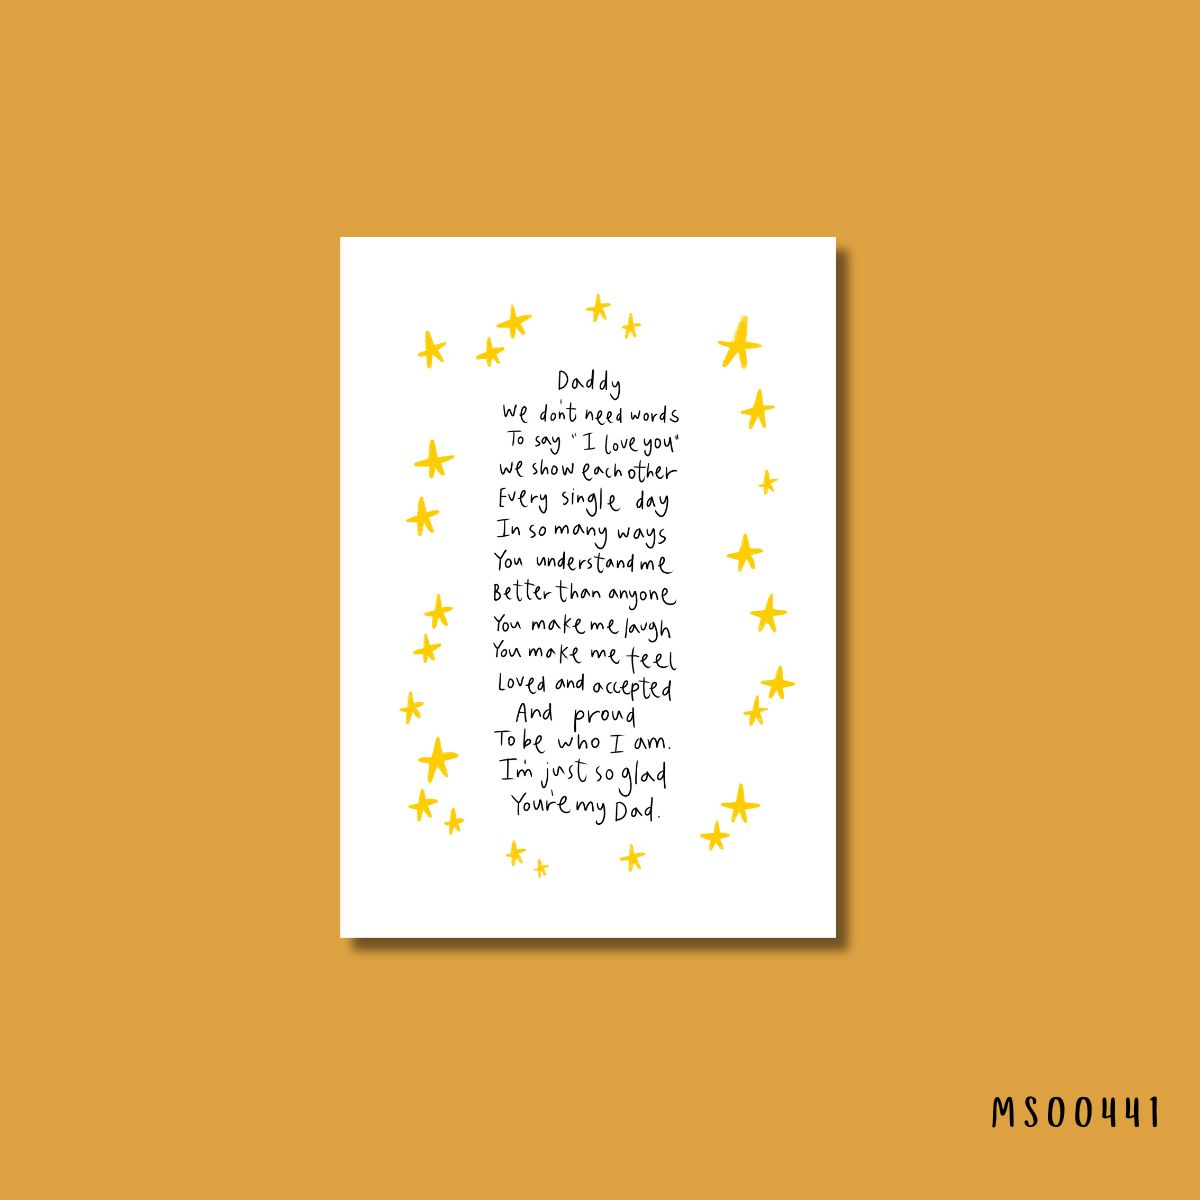 Daddy
We don't need words
To say "I love you"
We show each other
Every single day
In so many ways
You understand me
Better than anyone
You make me laugh
You make me feel
Loved and accepted
And proud
To be who I am.
I'm just so glad
You're my Dad.
MS00441